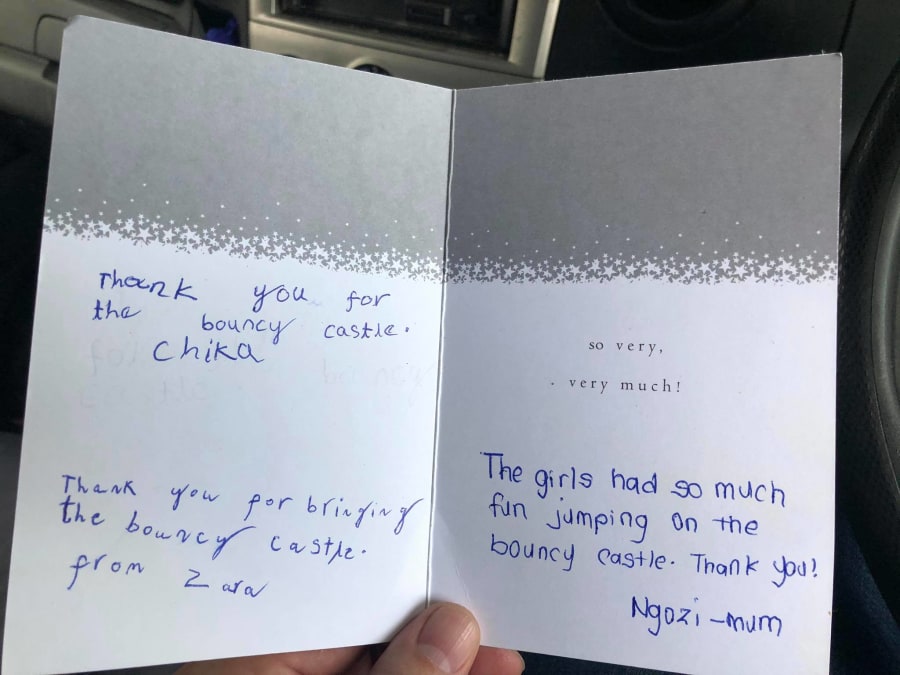 Thank you for
the bouncy castle.
Chika
Thank you for bringing
the bouncy castle.
from Zara
so very,
very much!
The girls had so much
fun jumping on the
bouncy castle. Thank you!
Ngozi - mum